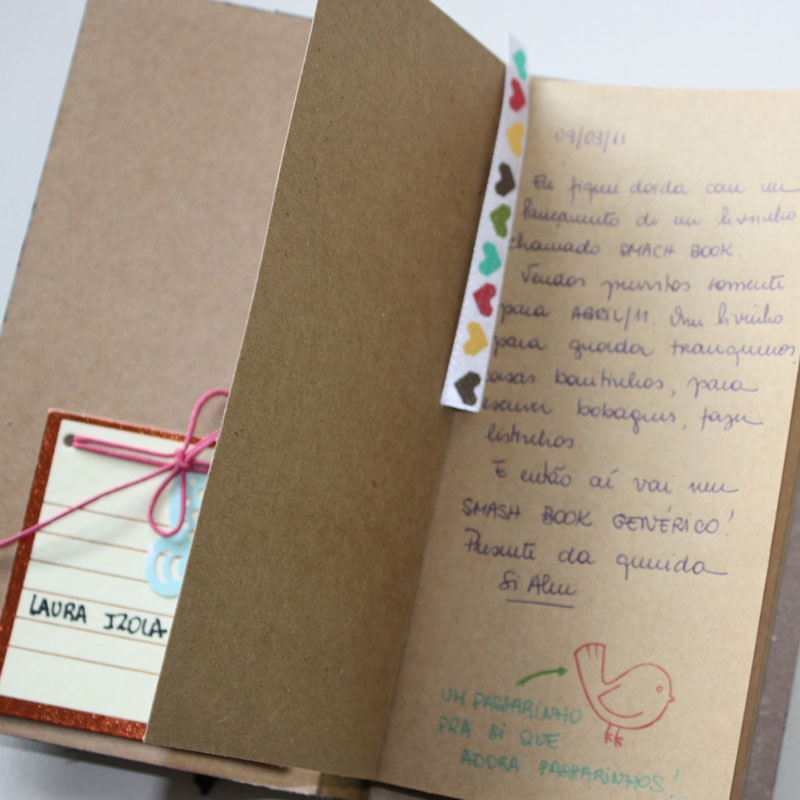 LAURA IZOLA
09/03/11
Eu fiquei doida com um
lançamento de um livrinho
chamado SMASH BOOK.
Vendas previstas somente
para ABRIL/11. Um livrinho
para guardar tranqueiras,
coisas bonitinhas, para
escrever bobagens, fazer
listinhas
E então aí vai meu
SMASH BOOK GENÉRICO!
Presente da querida
Si
UM PASSARINHO
PRA SI QUE
ADORA PASSARINHOS!